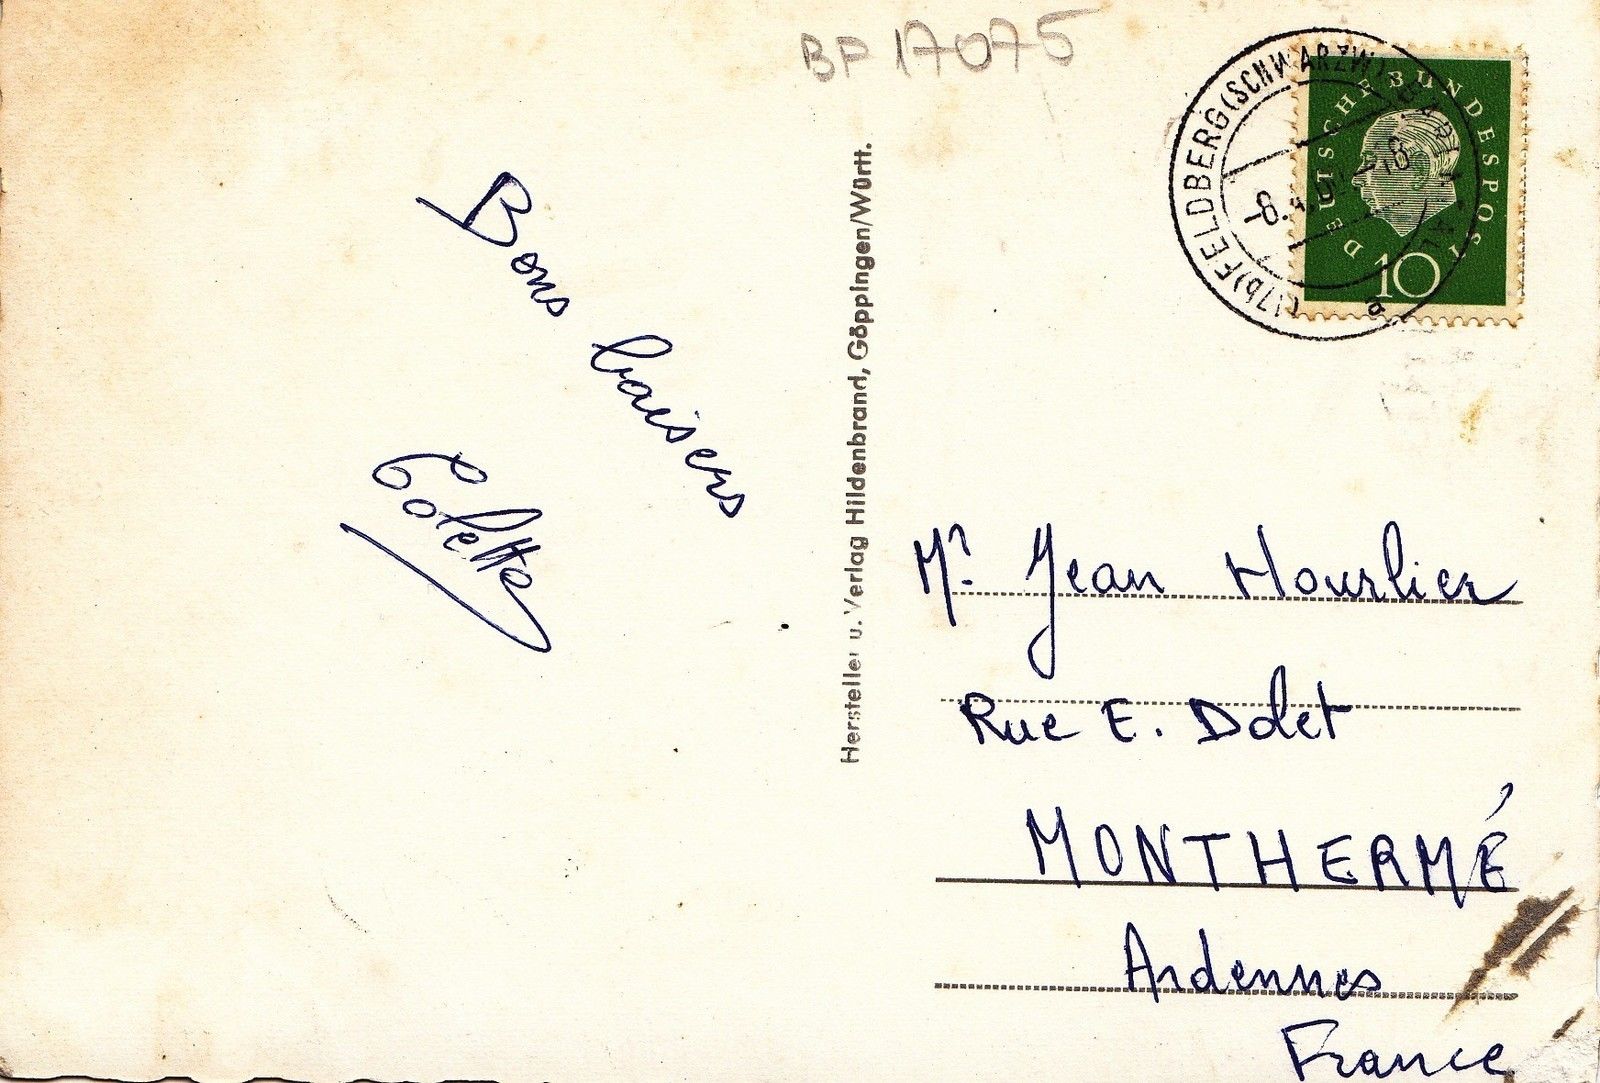 BP 17075
(17b) FELDBERG (SCHWARZW)
-8.4.61-18
a
DEUTSCHE BUNDESPOST
10
Bons baisers
Colette
Hersteller u. Verlag Hildenbrand, Göppingen/Württ.
Mr. Jean Hourlier
Rue E. Dolet
MONTHERMÉ
Ardennes
France